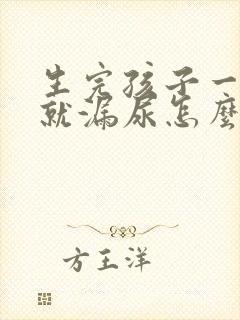 生完孩子一
就漏尿怎麼
方王洋